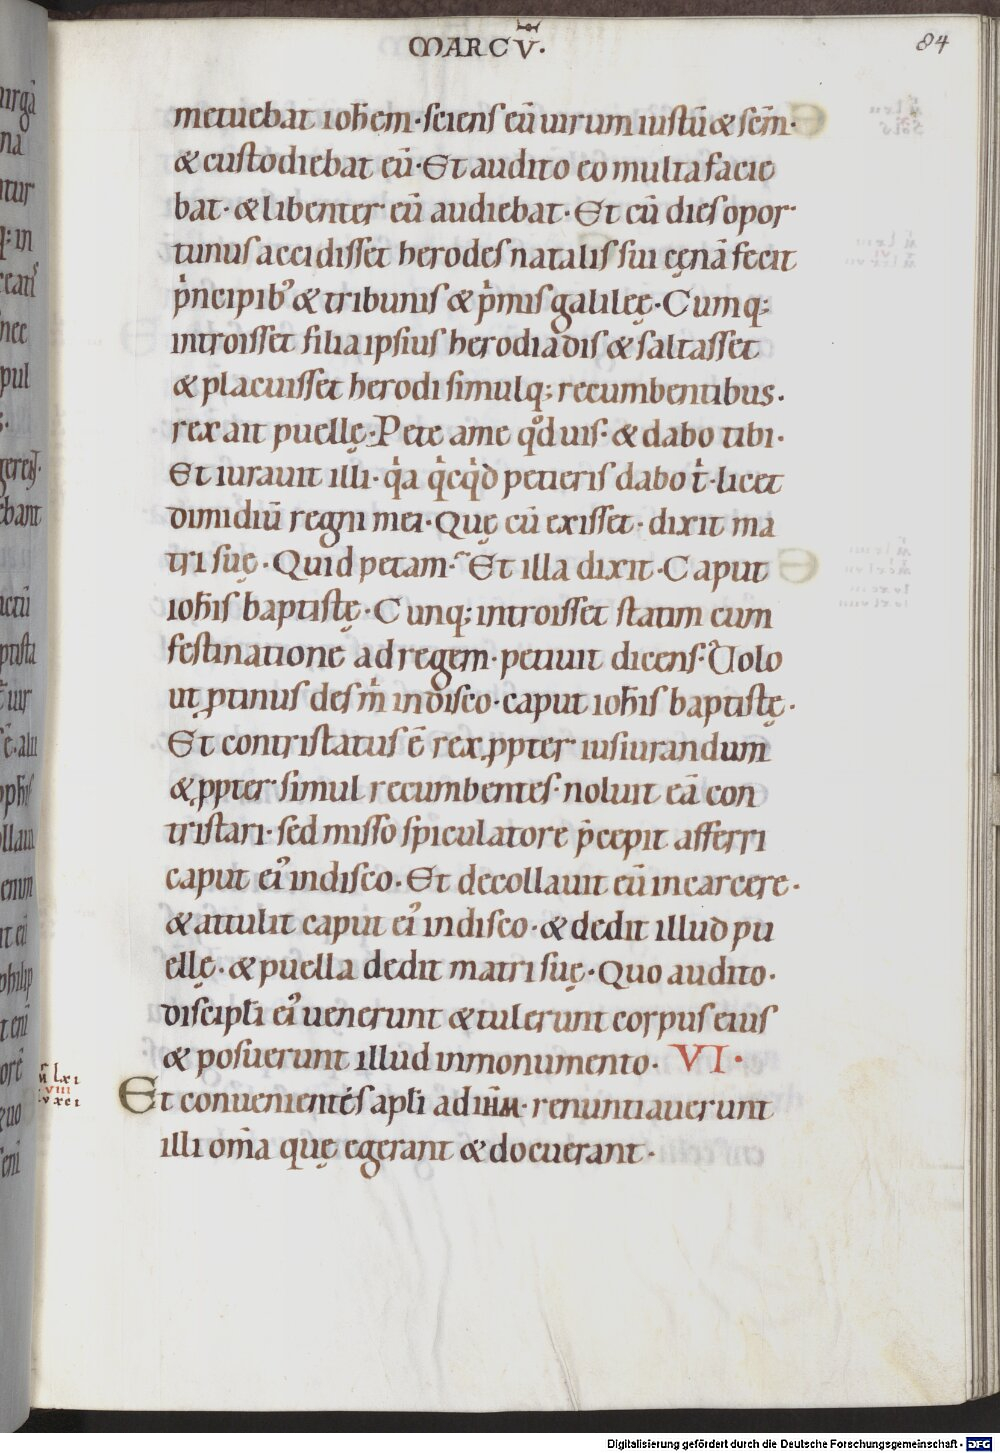 MARCṼ·
84
metuebat ioh̅em·sciens eū uirum iustū & sc̅m·
& custodiebat eū·Et audito eo multa facie
bat·& libenter eū audiebat·Et cū dies opor·
tunus accidisset herodes natalis sui cęnā fecit
p̍ncipib᾿ & tribunis & p̍mis galileę·Cumq;
introisset filia ipsius herodiadis & saltasset
& placuisset herodi simulq; recumbentibus·
rex ait puellę·Pete ame qͦd uis·& dabo tibi·
Et iurauit illi·q̍a q̍cq̍d petieris dabo t̍·licet
dimidiū regni mei·Quę cū exisset·dixit ma
tri suę·Quid petam·Et illa dixit·Caput
ioh̅is baptistę·Cunq; introisset statim cum
festinatione ad regem·petiuit dicens·Uolo
ut ꝓtinus des m̍ indisco·caput ioh̅is baptistę·
Et contristatus ē rex·ꝓpter iusiurandum
& ꝓpter simul recumbentes·noluit eā con
tristari·sed misso spiculatore p̄cepit afferri
caput ei᾿ indisco·Et decollauit eū incarcere·
& attulit caput ei᾿ indisco·& dedit illud pu
ellę·& puella dedit matri suę·Quo audito·
discipl̅i ei᾿ uenerunt & tulerunt corpus eius
& posuerunt illud inmonumento· VI·
Et conuenientes apl̅i adih̅m·renuntiauerunt
illi om̅a quę egerant & docuerant·
Digitalisierung gefördert durch die Deutsche Forschungsgemeinschaft - DFG